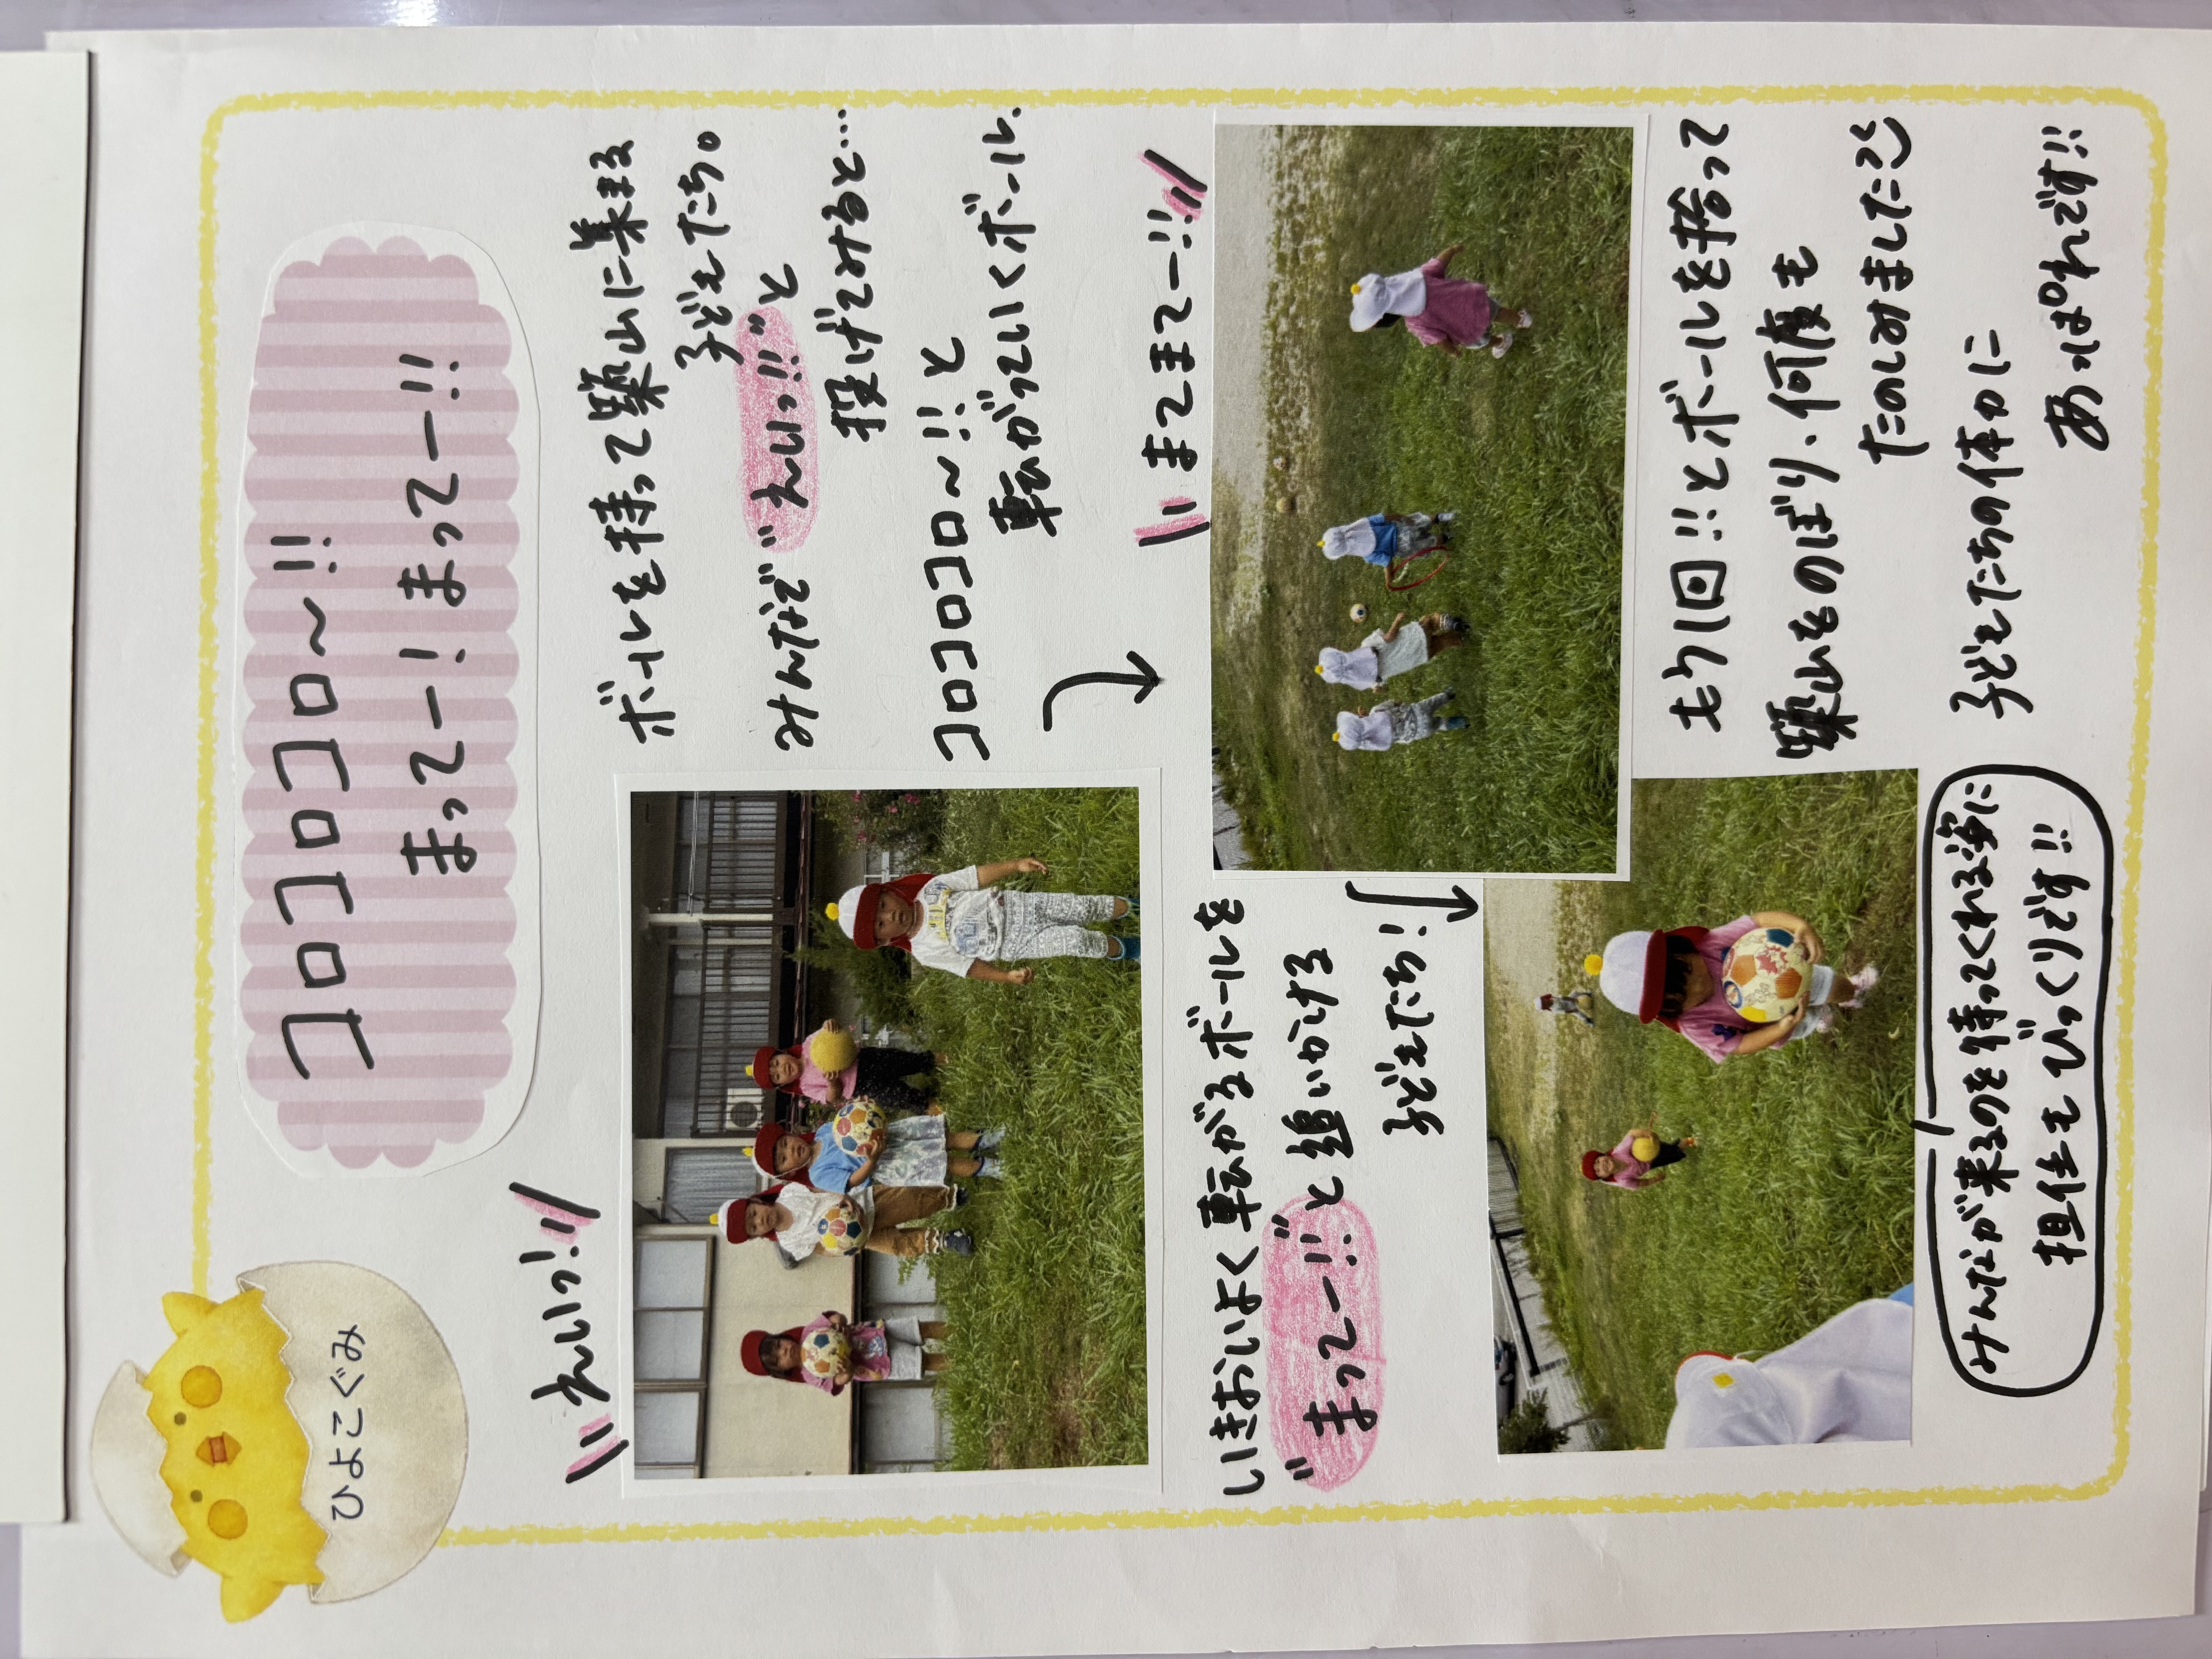 ひよこぐみ
コロコロコロ〜!!
まってー！まってー!!
えいっ!!
ボールを持って築山に集まる
子どもたち。
みんなで"えいっ!!"と
投げてみると…
コロコロコロ〜!!と
転がっていくボール、
まてまてー!!
いきおいよく転がるボールを
"まってー!!"と追いかける
子どもたち！
もう1回!!とボールを拾って
築山をのぼり、何度も
たのしみましたよ
子どもたちの体力に
あっぱれです!!
みんなが来るのを待ってくれる姿に
担任もびっくりです!!